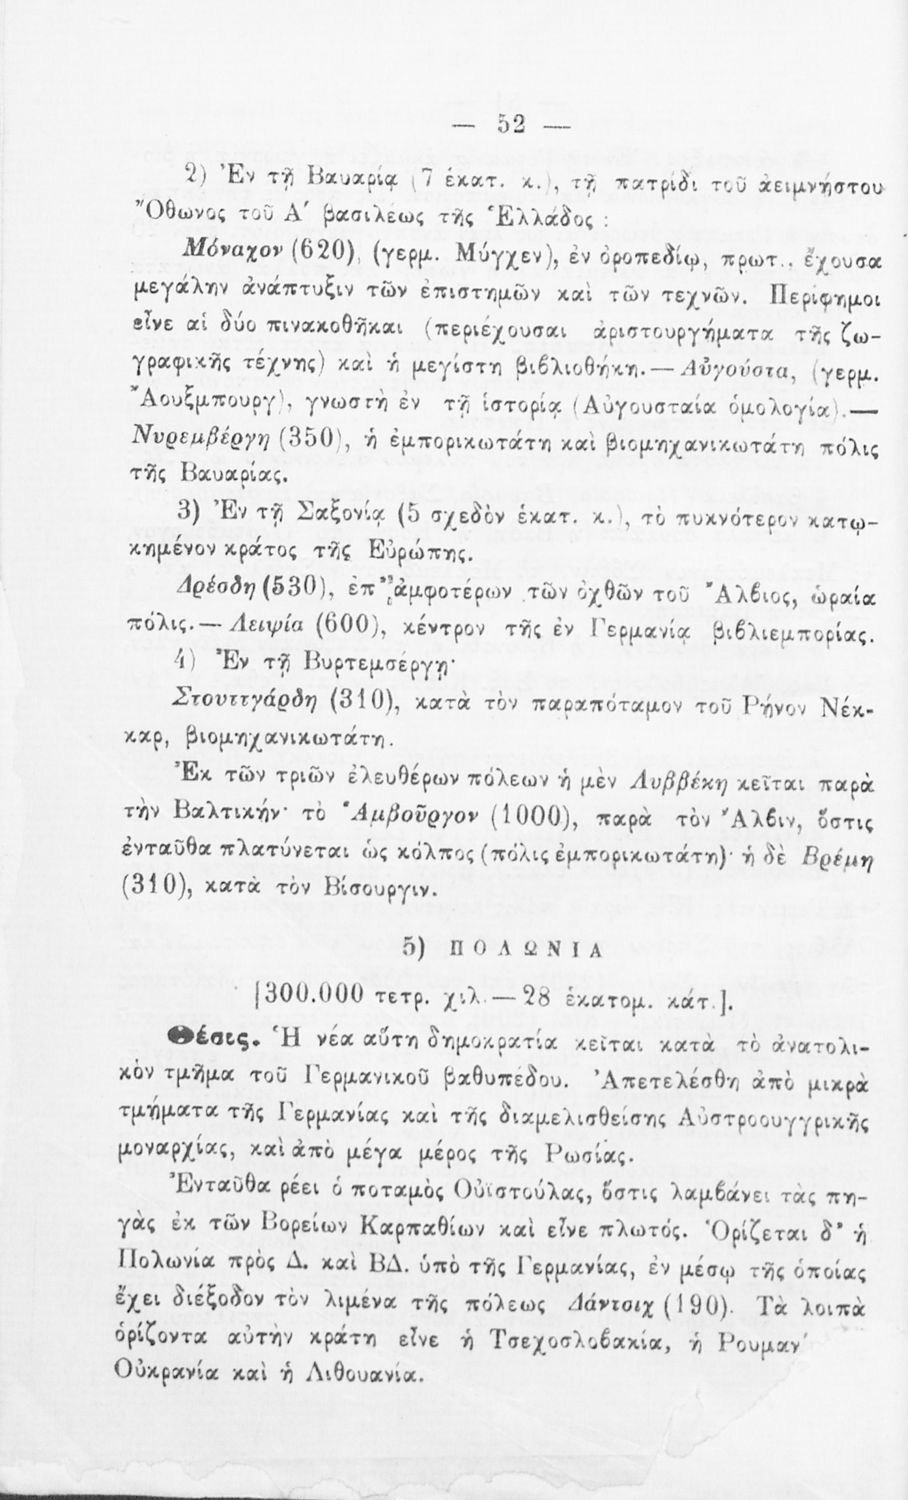 — 52 —
2) Ἐν τῇ Βαυαρίᾳ (7 ἑκατ. κ.), τῇ πατρίδι τοῦ ἀειμνήστου
Ὄθωνος τοῦ Α΄ βασιλέως τῆς Ἑλλάδος :
Μόναχον (620), (γερμ. Μύγχεν), ἐν ὀροπεδίῳ, πρωτ., ἔχουσα
μεγάλην ἀνάπτυξιν τῶν ἐπιστημῶν καὶ τῶν τεχνῶν. Περίφημοι
εἶνε αἱ δύο πινακοθῆκαι (περιέχουσαι ἀριστουργήματα τῆς ζω-
γραφικῆς τέχνης) καὶ ἡ μεγίστη βιβλιοθήκη.— Αὐγούστα, (γερμ.
Ἄουξμπουργ), γνωστὴ ἐν τῇ ἱστορίᾳ (Αὐγουσταία ὁμολογία).—
Νυρεμβέργη (350), ἡ ἐμπορικωτάτη καὶ βιομηχανικωτάτη πόλις
τῆς Βαυαρίας.
3) Ἐν τῇ Σαξονίᾳ (5 σχεδὸν ἑκατ. κ.), τὸ πυκνότερον κατῳ-
κημένον κράτος τῆς Εὐρώπης.
Δρέσδη (530), ἐπ᾿ ἀμφοτέρων τῶν ὀχθῶν τοῦ Ἄλβιος, ὡραία
πόλις.— Λειψία (600), κέντρον τῆς ἐν Γερμανίᾳ βιβλιεμπορίας.
4) Ἐν τῇ Βυρτεμσέργῃ·
Στουττγάρδη (310), κατὰ τὸν παραπόταμον τοῦ Ρήνου Νέκ-
καρ, βιομηχανικωτάτη.
Ἐκ τῶν τριῶν ἐλευθέρων πόλεων ἡ μὲν Λυββέκη κεῖται παρὰ
τὴν Βαλτικήν· τὸ Ἁμβοῦργον (1000), παρὰ τὸν Ἄλβιν, ὅστις
ἐνταῦθα πλατύνεται ὡς κόλπος (πόλις ἐμπορικωτάτη)· ἡ δὲ Βρέμη
(310), κατὰ τὸν Βίσουργιν.
5) ΠΟΛΩΝΙΑ
[300.000 τετρ. χιλ.— 28 ἑκατομ. κάτ.].
Θέσις. Ἡ νέα αὕτη δημοκρατία κεῖται κατὰ τὸ ἀνατολι-
κὸν τμῆμα τοῦ Γερμανικοῦ βαθυπέδου. Ἀπετελέσθη ἀπὸ μικρὰ
τμήματα τῆς Γερμανίας καὶ τῆς διαμελισθείσης Αὐστροουγγρικῆς
μοναρχίας, καὶ ἀπὸ μέγα μέρος τῆς Ρωσίας.
Ἐνταῦθα ρέει ὁ ποταμὸς Οὐϊστούλας, ὅστις λαμβάνει τὰς πη-
γὰς ἐκ τῶν Βορείων Καρπαθίων καὶ εἶνε πλωτός. Ὁρίζεται δ᾿ ἡ
Πολωνία πρὸς Δ. καὶ ΒΔ. ὑπὸ τῆς Γερμανίας, ἐν μέσῳ τῆς ὁποίας
ἔχει διέξοδον τὸν λιμένα τῆς πόλεως Δάντσιχ (190). Τὰ λοιπὰ
ὁρίζοντα αὐτὴν κράτη εἶνε ἡ Τσεχοσλοβακία, ἡ Ρουμαν
Οὐκρανία καὶ ἡ Λιθουανία.